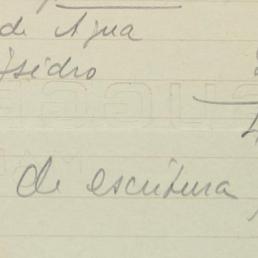 de Agua
Isidro
de escritura